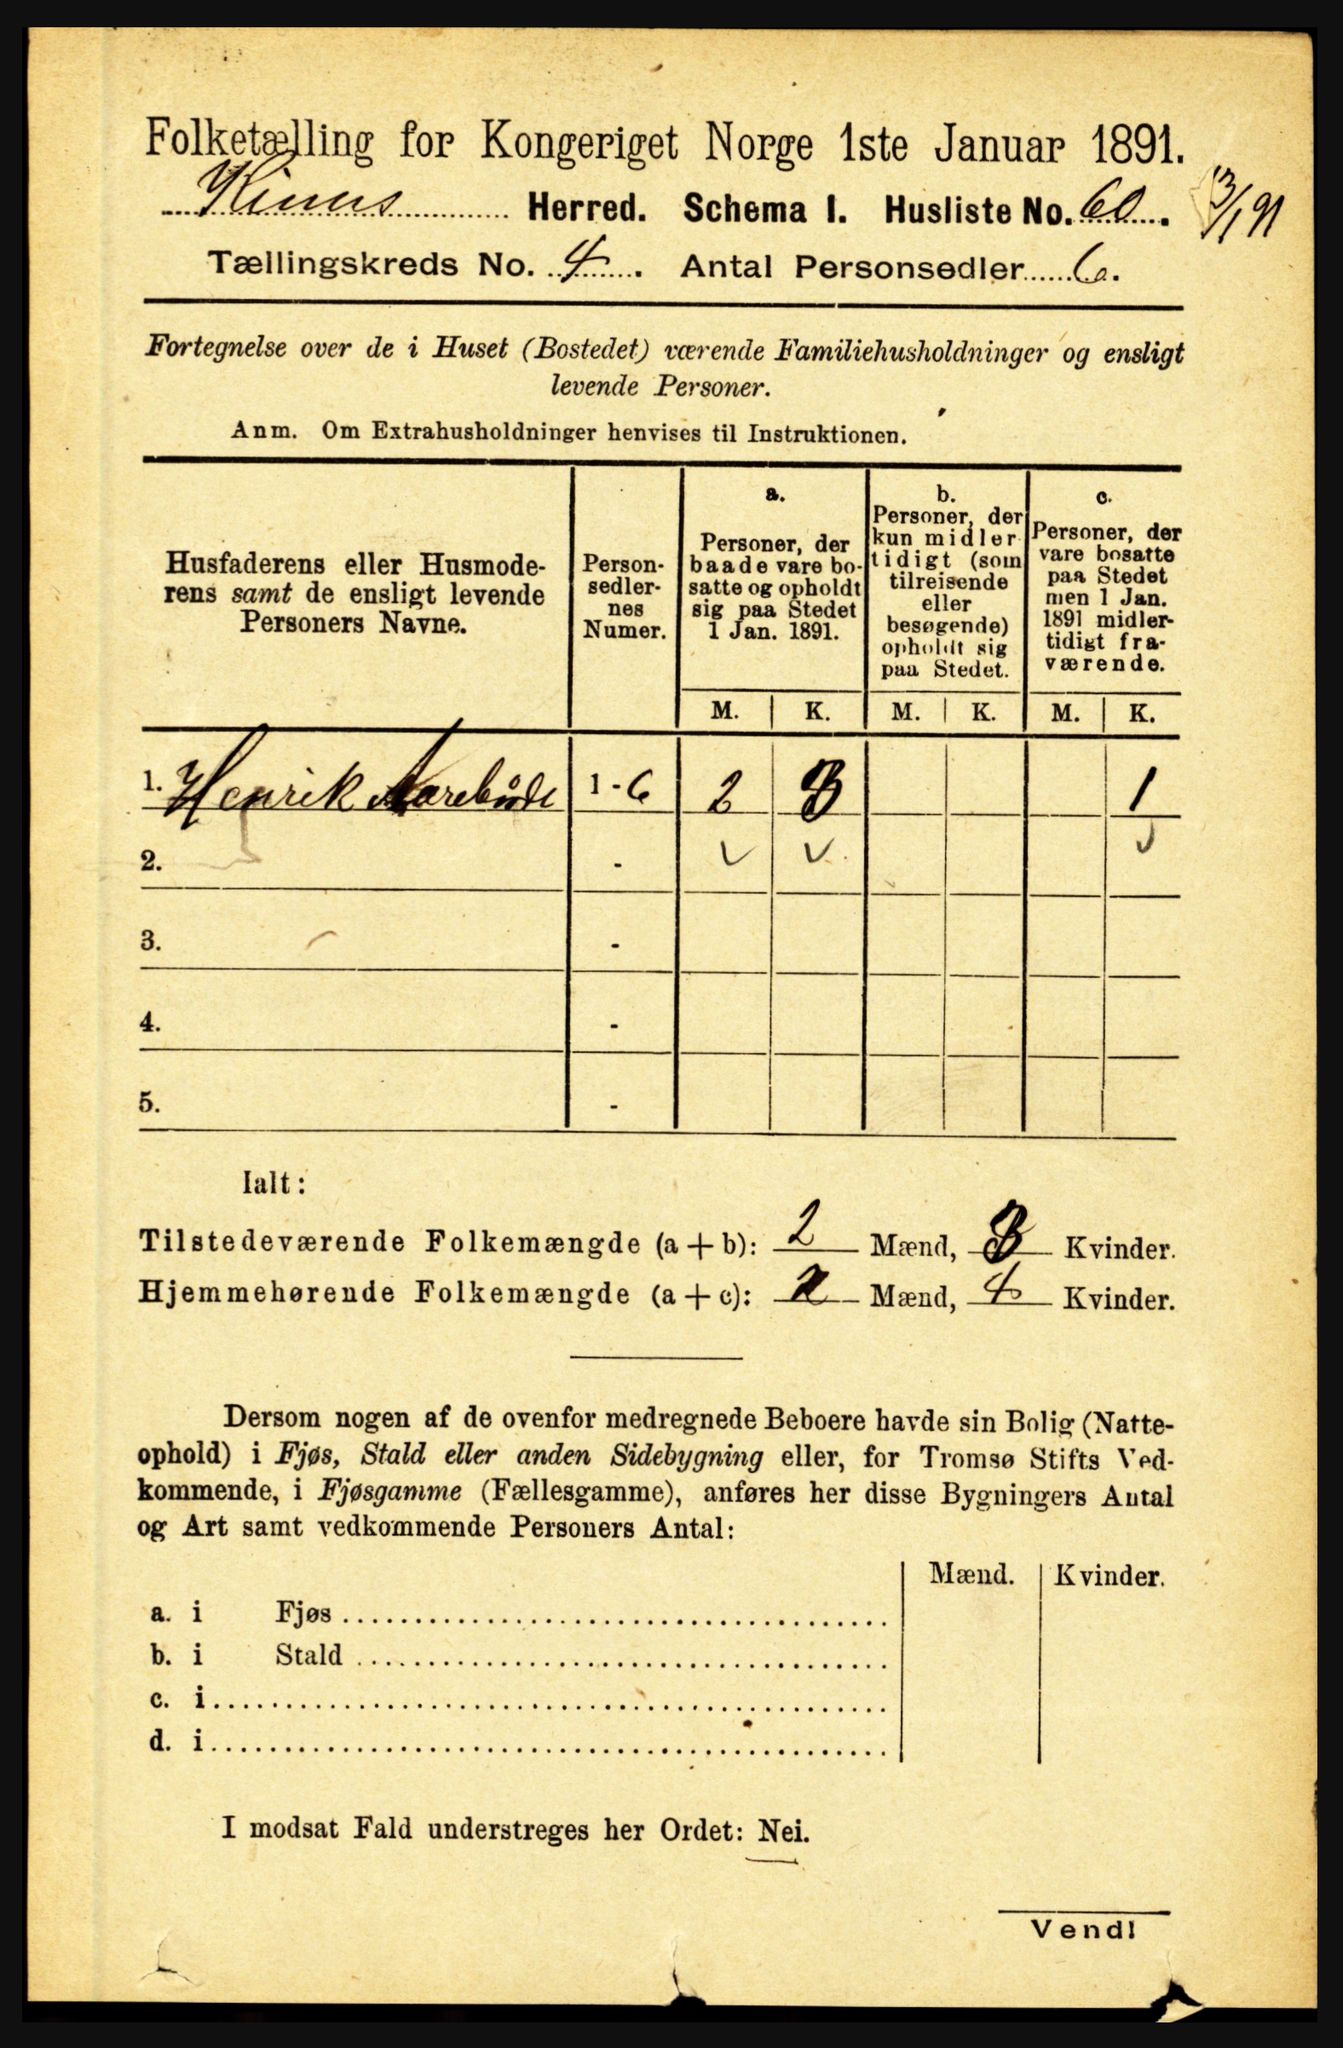 Folketælling for Kongeriget Norge 1ste Januar 1891.
Kinns Herred. Schema I. Husliste No. 60. 13/1 91
Tællingskreds No. 4. Antal Personsedler 6.
Fortegnelse over de i Huset (Bostedet) værende Familiehusholdninger og ensligt
levende Personer.
Anm. Om Extrahusholdninger henvises til Instruktionen.
Husfaderens eller Husmode-
rens samt de ensligt levende
Personers Navne.
Person-
sedler-
nes
Numer.
a.
Personer, der
baade vare bo-
satte og opholdt
sig paa Stedet
1 Jan. 1891.
b.
Personer, der
kun midler
tidigt (som
tilreisende
eller
besøgende)
opholdt sig
paa Stedet.
c.
Personer, der
vare bosatte
paa Stedet
men 1 Jan.
1891 midler-
tidigt fra-
værende.
M. K. M. K. M. K.
1. Henrik Aarebrode 1-6 2 3 1
2. -
3. -
4. -
5. -
Ialt:
Tilstedeværende Folkemængde (a + b): 2 Mænd, 3 Kvinder.
Hjemmehørende Folkemængde (a + c): 2 Mænd, 4 Kvinder.
Dersom nogen af de ovenfor medregnede Beboere havde sin Bolig (Natte-
ophold) i Fjøs, Stald eller anden Sidebygning eller, for Tromsø Stifts Ved-
kommende, i Fjøsgamme (Fællesgamme), anføres her disse Bygningers Antal
og Art samt vedkommende Personers Antal:
Mænd. Kvinder.
a. i Fjøs
b. i Stald
c. i
d. i
I modsat Fald understreges her Ordet: Nei.
Vend!